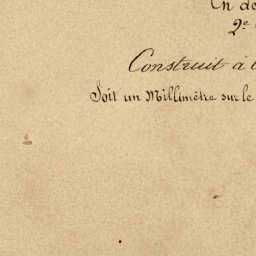 2e
Construit à
Soit un Millimètre sur le